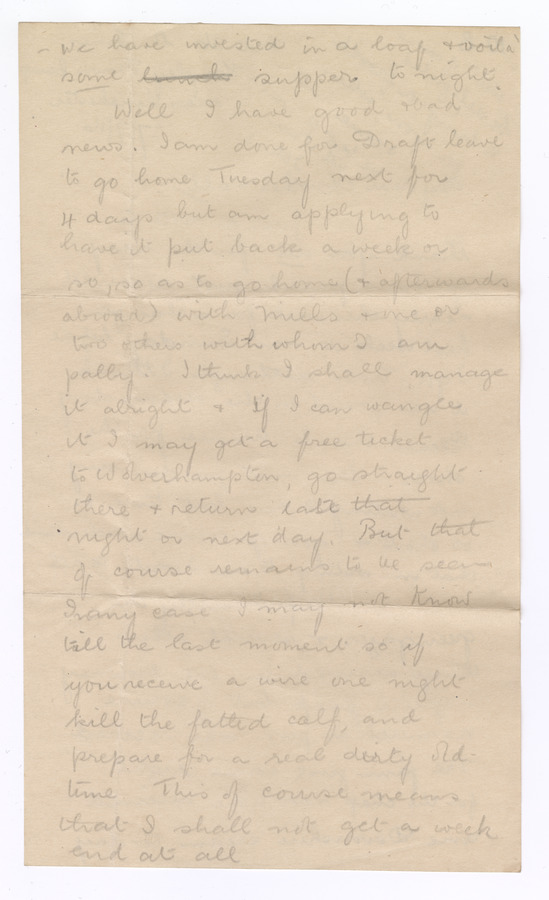 - We have invested in a loaf & voilà
some lunch supper to night.
Well I have good & bad
news. I am done for Draft leave
to go home Tuesday next for
4 days but am applying to
have it put back a week or
so, so as to go home (& afterwards
abroad) with Mills & one or
two others with whom I am
pally. I think I shall manage
it alright & if I can wangle
it I may get a free ticket
to Wolverhampton, go straight
there & return late that
night or next day. But that
of course remains to be seen
In any case I may not know
till the last moment so if
you receive a wire one night
kill the fatted calf, and
prepare for a real dirty old-
time. This of course means
that I shall not get a week
end at all